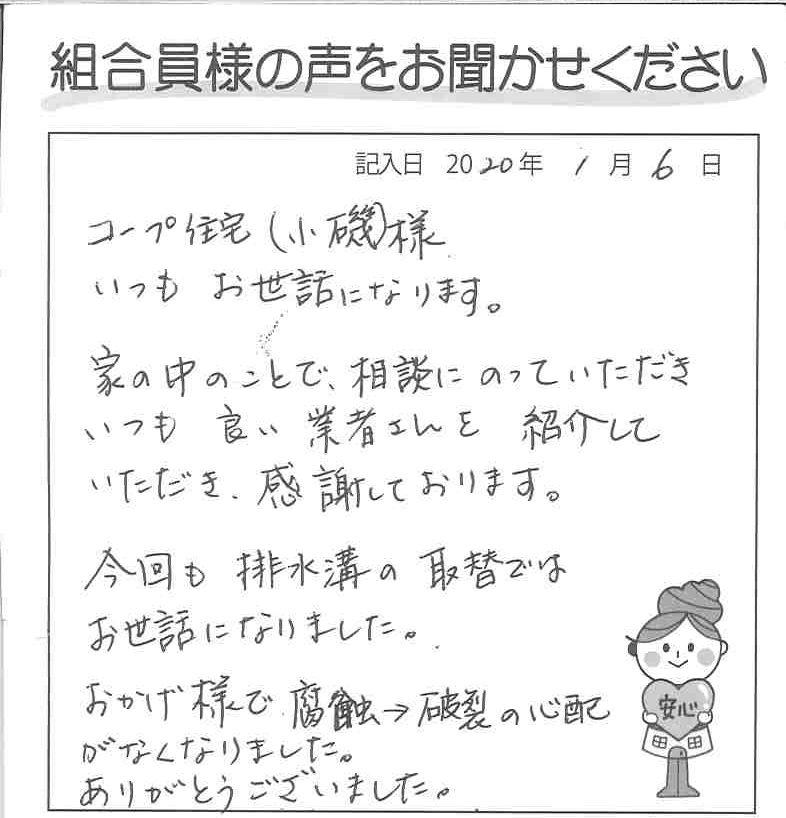 組合員様の声をお聞かせください
記入日 2020年 1月 6日
コープ住宅(小磯)様
いつも お世話になります。
家の中のことで、相談にのっていただき
いつも 良い 業者さんを 紹介して
いただき、感謝しております。
今回も 排水溝の 取替では
お世話になりました。
おかげ様で 腐蝕→破裂の心配
がなくなりました。
ありがとうございました。
安心